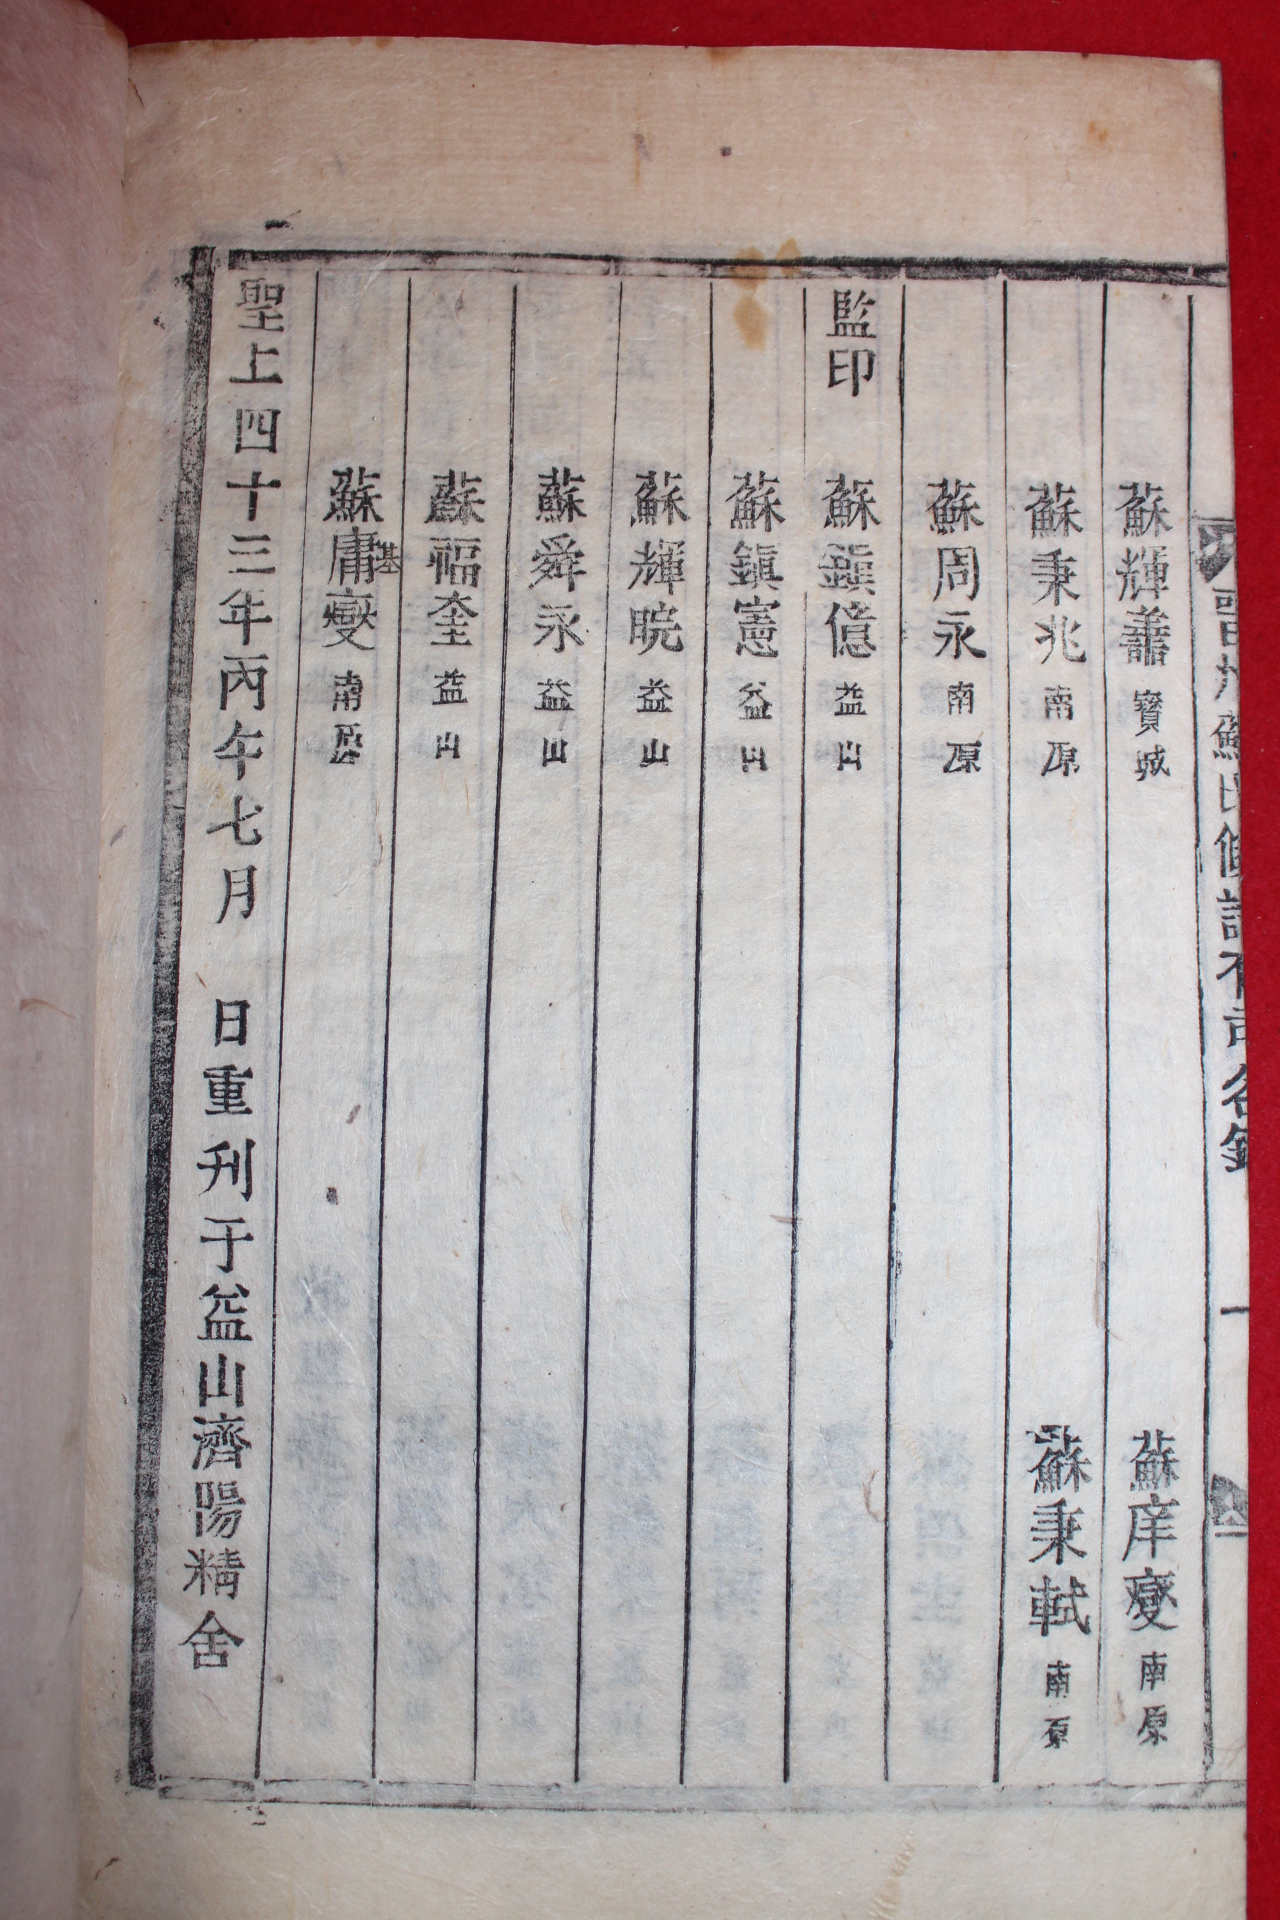 晉州蘇氏修譜有司名錄 一
蘇輝善 寶城 蘇庠燮 南原
蘇秉兆 南原 蘇秉軾 南原
蘇周永 南原
監印 蘇鎭億 益山
蘇鎭憲 益山
蘇輝晥 益山
蘇舜永 益山
蘇福奎 益山
蘇庸燮 基 南原
聖上四十三年丙午七月 日重刊于益山濟陽精舍